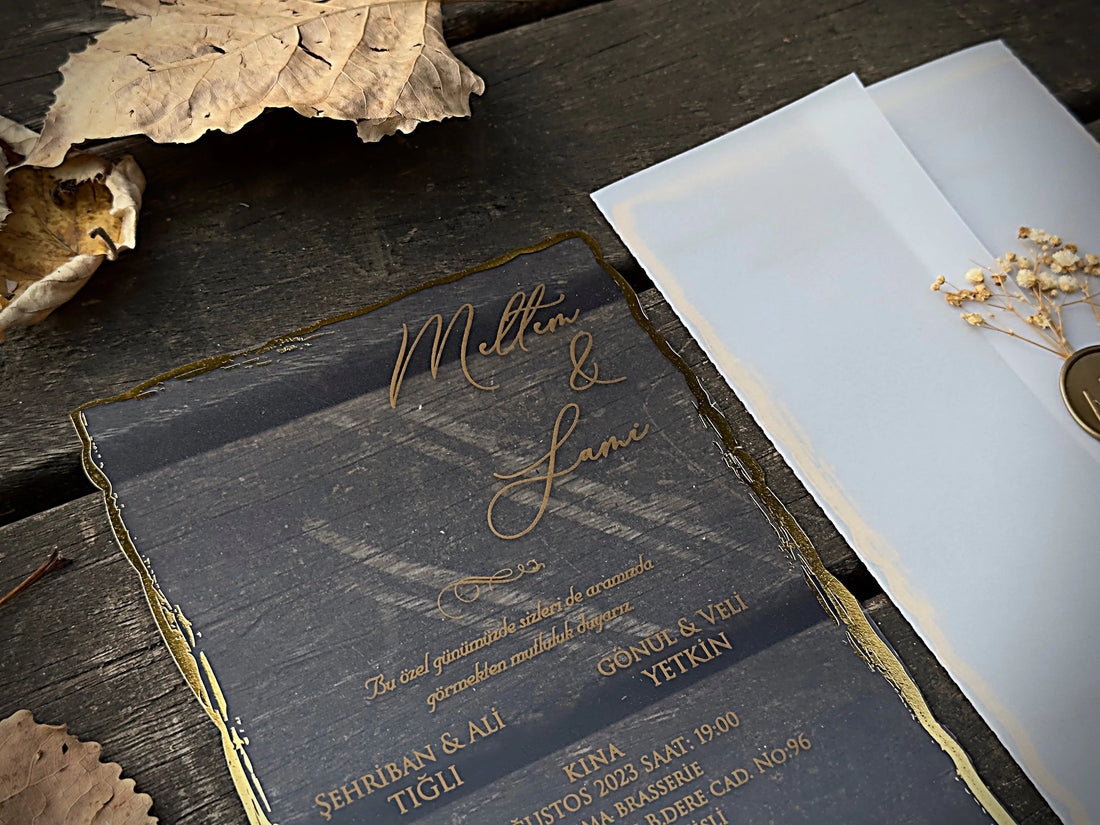 Meltem
&
Sami
Bu özel günümüzde sizleri de aramızda
görmekten mutluluk duyarız.
GÖNÜL & VELİ
YETKİN
ŞEHRİBAN & ALİ
TIĞLI
KINA
ĞUSTOS 2023 SAAT: 19:00
MA BRASSERIE
B.DERE CAD. NO:96
İŞLİ